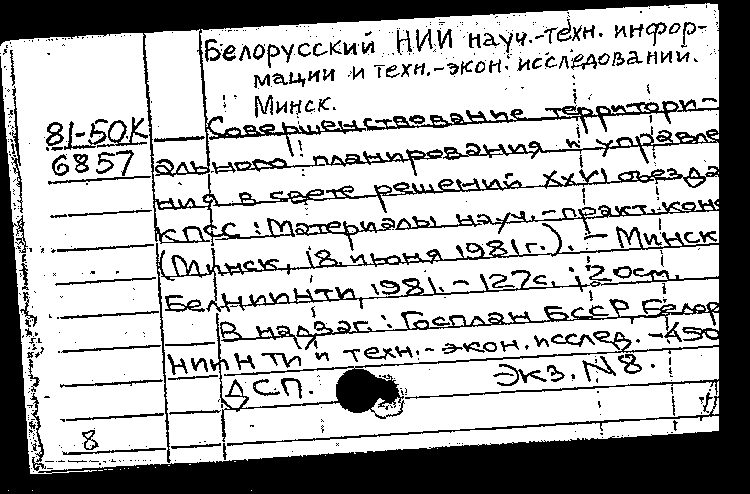 Белорусский НИИ науч.-техн. инфор-
мации и техн.-экон. исследований.
Минск.
81-50К
6857
Совершенствование территори-
ального планирования и управле
ния в свете решений XXVI съезда
КПСС : Материалы науч.-практ. кон
(Минск, 18 июня 1981г.). – Минск
БелНИИНТИ, 1981. – 127с. ; 20см.
В надзаг. : Госплан БССР, Белор
НИИНТИ и техн.-экон. исслед. – 450
ДСП.
Экз. N8.
8